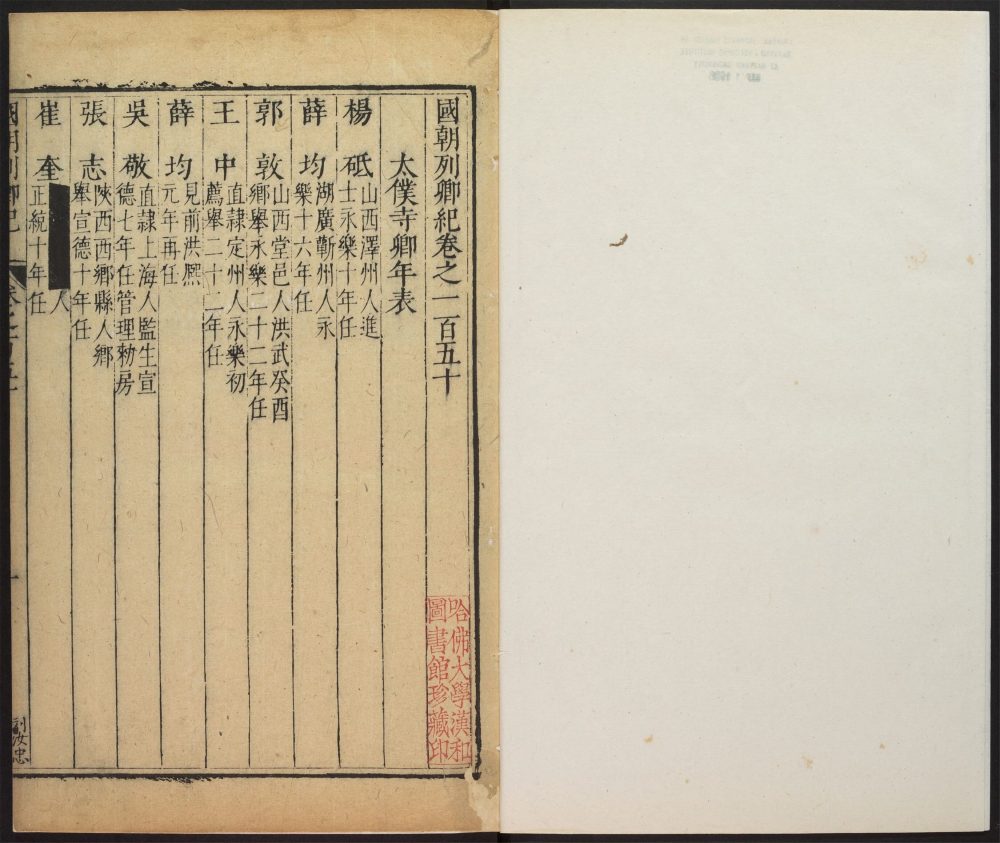 國朝列卿紀卷之一百五十
太僕寺卿年表
楊砥 山西澤州人進士永樂十年任
薛均 湖廣蘄州人永樂十六年任
郭敦 山西堂邑人洪武癸酉鄉舉永樂二十二年任
王中 直隸定州人永樂初薦舉二十二年任
薛均 見前洪熙元年再任
吳敬 直隸上海人監生宣德七年任管理勅房
張志 陝西西鄉縣人鄉舉宣德十年任
崔奎 人正統十年任
國朝列卿紀
劉汝忠
哈佛大學漢和圖書館珍藏印